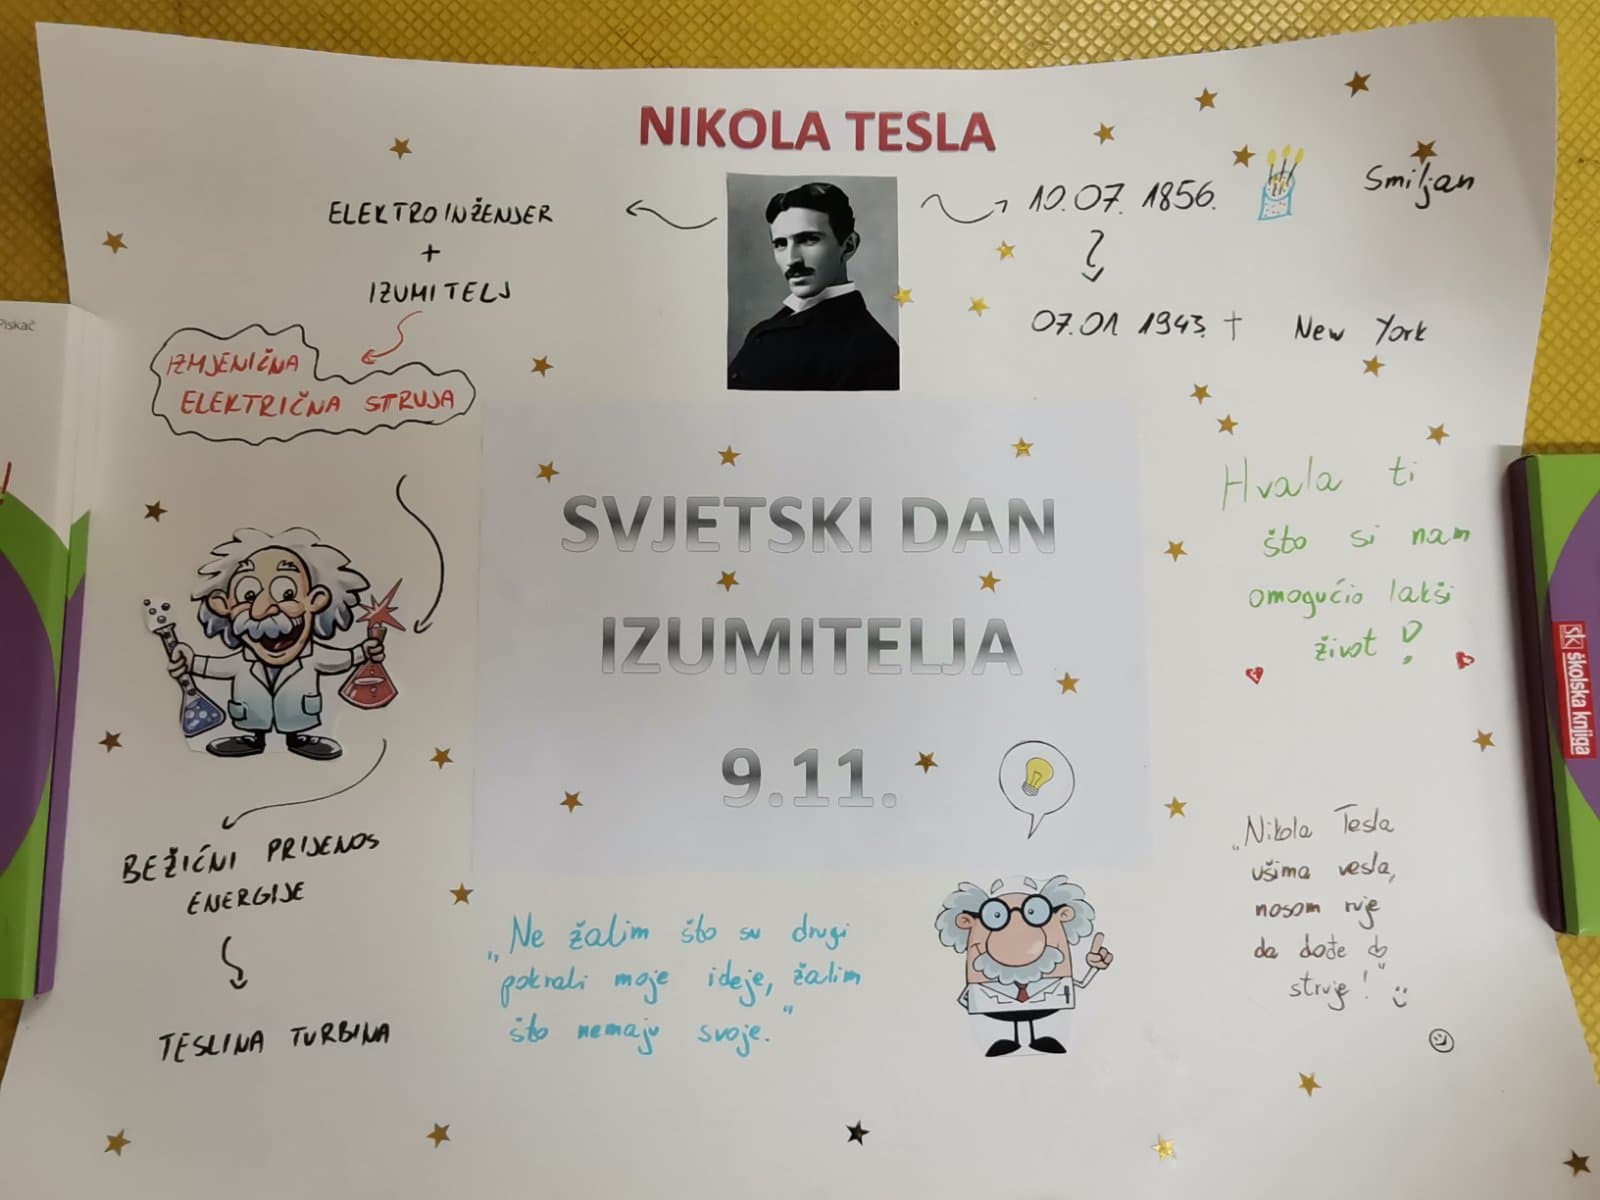 NIKOLA TESLA
ELEKTROINŽENJER
+
IZUMITELJ
IZMJENIČNA
ELEKTRIČNA STRUJA
10.07. 1856.
Smiljan
07.01 1943. †
New York
Piskač
SVJETSKI DAN
IZUMITELJA
9.11.
Hvala ti
što si nam
omogućio lakši
život!
školska knjiga
BEŽIĆNI PRIJENOS
ENERGIJE
TESLINA TURBINA
„Ne žalim što su drugi
pokrali moje ideje, žalim
što nemaju svoje."
„Nikola Tesla
ušima vesla,
nosom ruje
da dođe do
struje!"